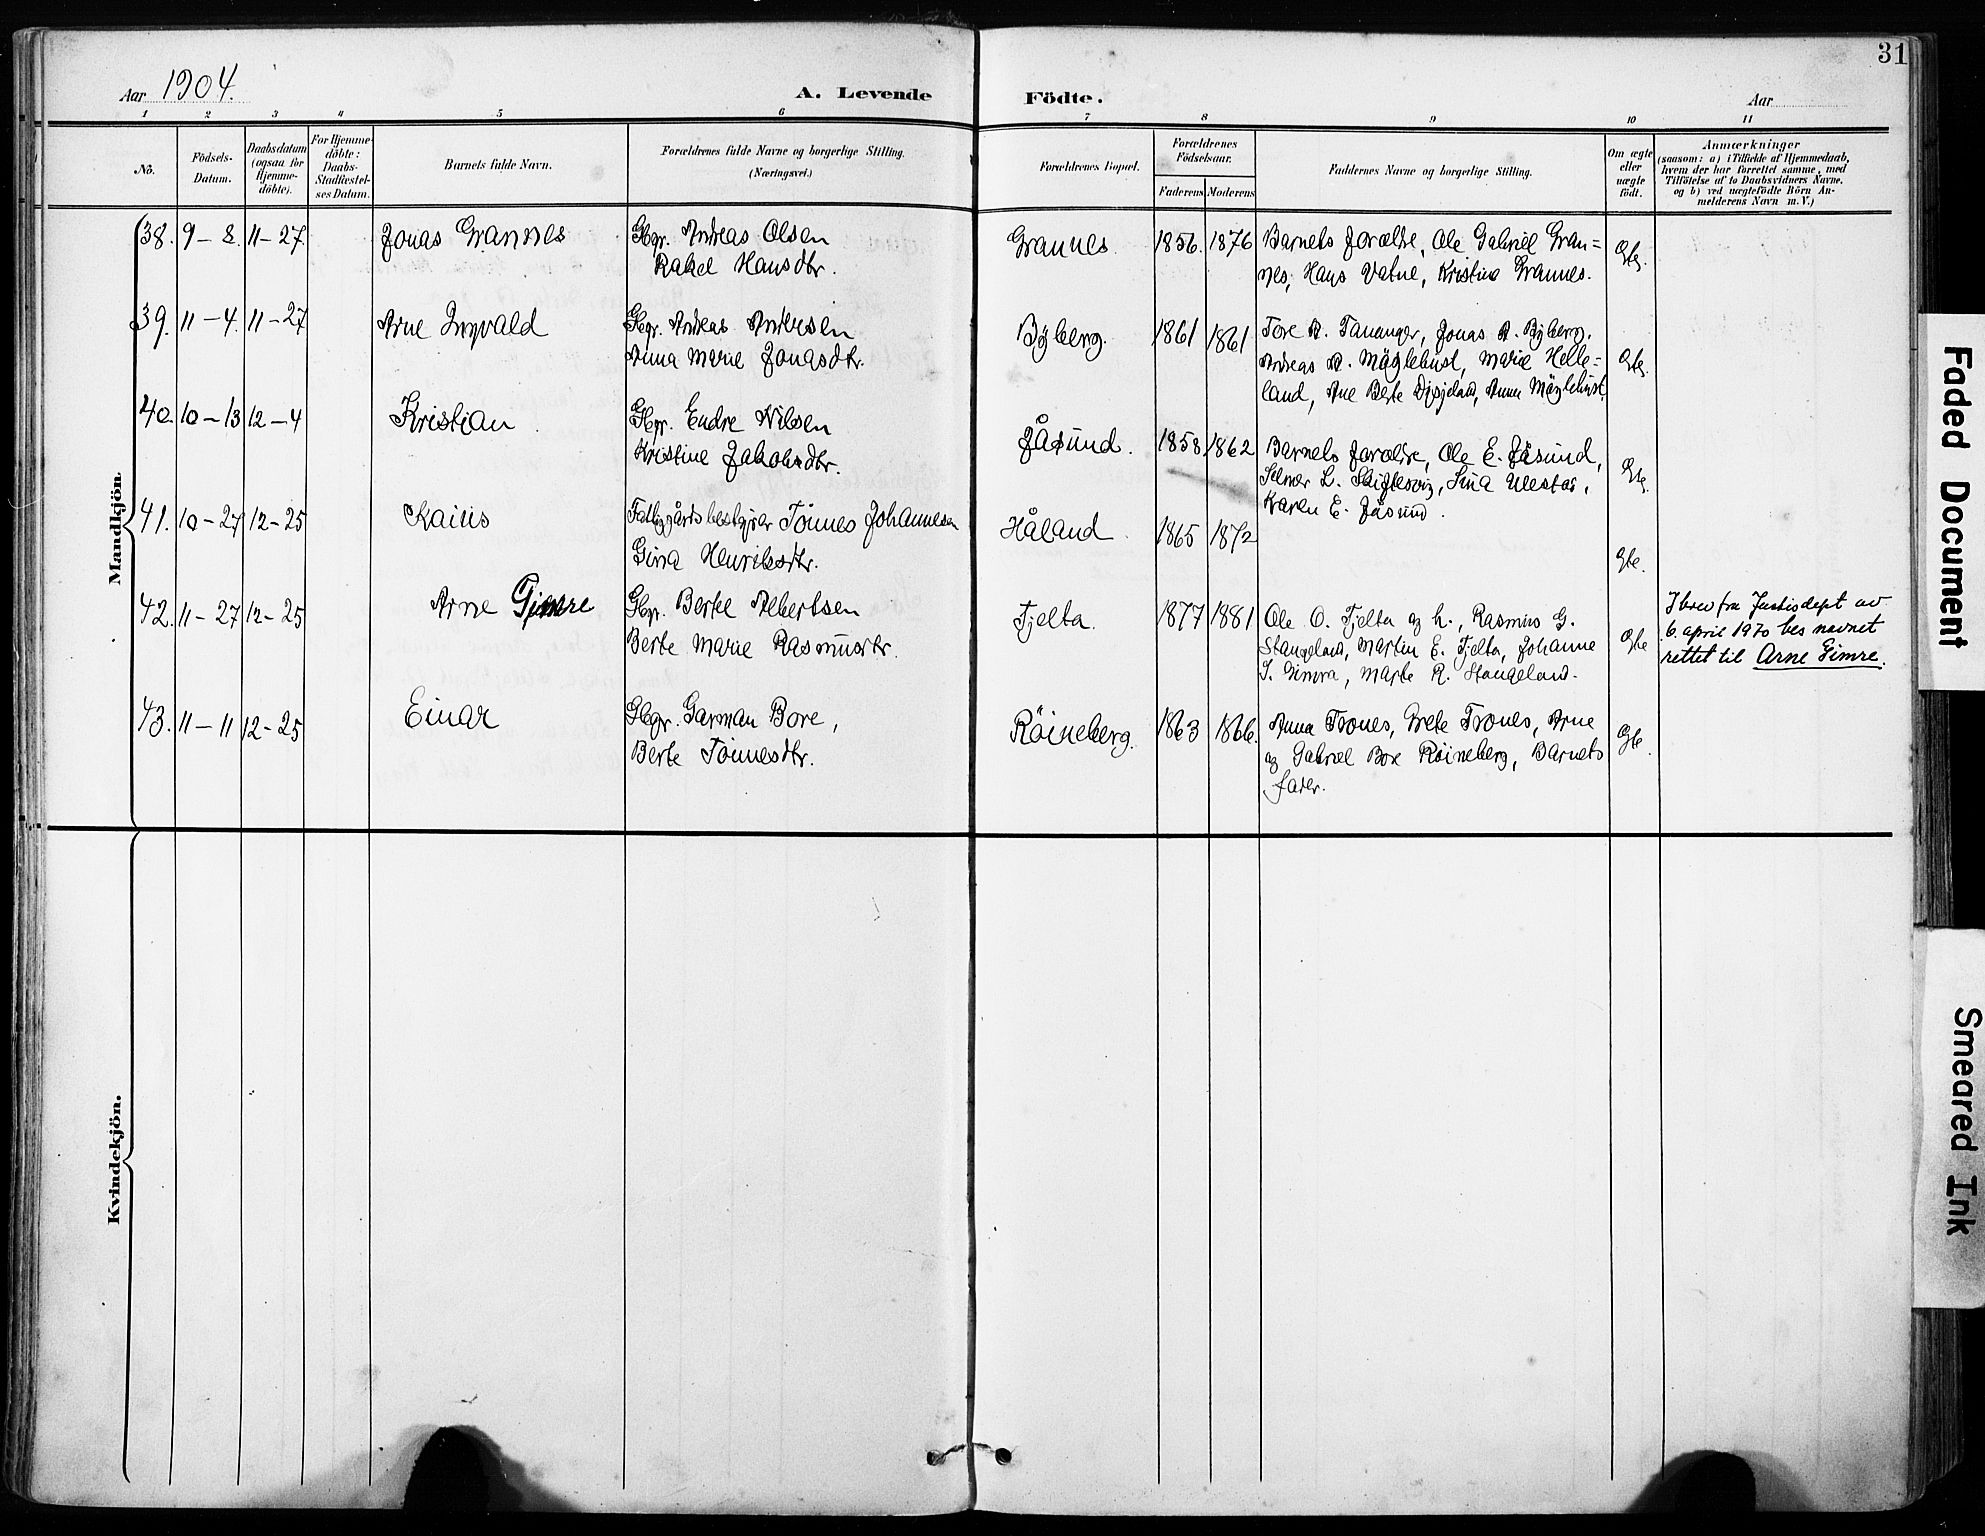 31
Aar 1904.
A. Levende
Födte.
Aar
1 2 3 4 5 6 7 8 9 10 11
No.
Födsels-
Datum.
Daabsdatum
(ogsaa for
Hjemme-
döbte).
For Hjemme-
döbte:
Daabs-
Stadfæstel-
ses Datum.
Barnets fulde Navn.
Forældrenes fulde Navne og borgerlige Stilling.
(Næringsvei.)
Forældrenes Bopæl.
Forældrenes
Födselsaar.
Faderens Moderens
Faddernes Navne og borgerlige Stilling.
Om ægte
eller
uægte
födt.
Anmærkninger
(saasom: a) i Tilfælde af Hjemmedaab,
hvem der har forrettet samme, med
Tilföielse af to Daabsvidners Navne,
og b) ved uægtefödte Börn An-
melderens Navn m. V.)
Mandkjön.
38. 9-8. 11-27. Jonas Grannes Gbgr. Andreas Olsen
Rakel Hansdtr.
Grannes. 1856. 1876 Barnets forældre, Ole Gabriel Gran=
nes, Hans Vatne, Kristine Grannes.
Gte.
39. 11-4. 11-27 Arne Ingvald Gbgr. Andreas Andersen
Anna Marie Jonasdtr.
Byberg. 1861 1861 Tore A. Tananger, Jonas A. Byberg,
Andreas A. Mäglehust, Marie Helle=
land, Ane Berte, Anna Mäglehust.
Gte.
40. 10-13 12-4 Kristian Gbgr. Endre Nilsen
Kristine Jakobsdtr.
Jåsund. 1858. 1862 Barnets forældre, Ole E. Jåsund,
Selmer L., Sina,
Karen E. Jåsund.
Gte.
41. 10-27 12-25 Kaius Fattiggårdsbestyrer Tönnes Johannesen
Gina Henriksdtr.
Håland. 1865 1872
Gte.
42. 11-27 12-25 Arne Gimre Gbgr. Bertel Albertsen
Berte Marie Rasmusdtr.
Tjelta. 1877 1881 Ole O. Tjelta og h., Rasmus G.
Stangeland, Martin E. Tjelta, Johanne
S. Gimra, Marte R. Stangeland.
Gte
I brev fra Justisdept av
6. april 1970 bes navnet
rettet til Arne Gimre.
43. 11-11 12-25 Einar Gbgr. Garman Bore,
Berte Tönnesdtr.
Röineberg. 1863 1866. Anna Trones, Grete Trones, Arne
og Gabriel Bore Röineberg, Barnets
fader.
Gte.
Kvindekjön.
Faded Document
Smeared Ink